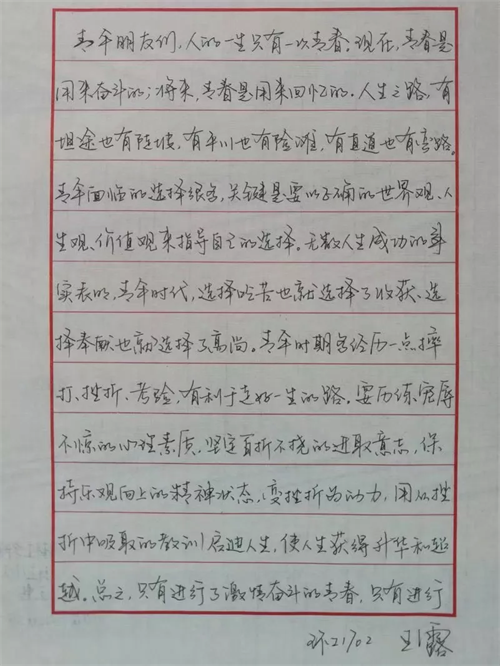 青年朋友们,人的一生只有一次青春。现在,青春是
用来奋斗的;将来,青春是用来回忆的。人生之路,有
坦途也有陡坡,有平川也有险滩,有直道也有弯路。
青年面临的选择很多,关键是要以正确的世界观、人
生观、价值观来指导自己的选择。无数人生成功的事
实表明,青年时代,选择吃苦也就选择了收获,选
择奉献也就选择了高尚。青年时期多经历一点摔
打、挫折、考验,有利于走好一生的路。要历练宠辱
不惊的心理素质,坚定百折不挠的进取意志,保
持乐观向上的精神状态,变挫折为动力,用从挫
折中吸取的教训启迪人生,使人生获得升华和超
越。总之,只有进行了激情奋斗的青春,只有进行
环21702 王露